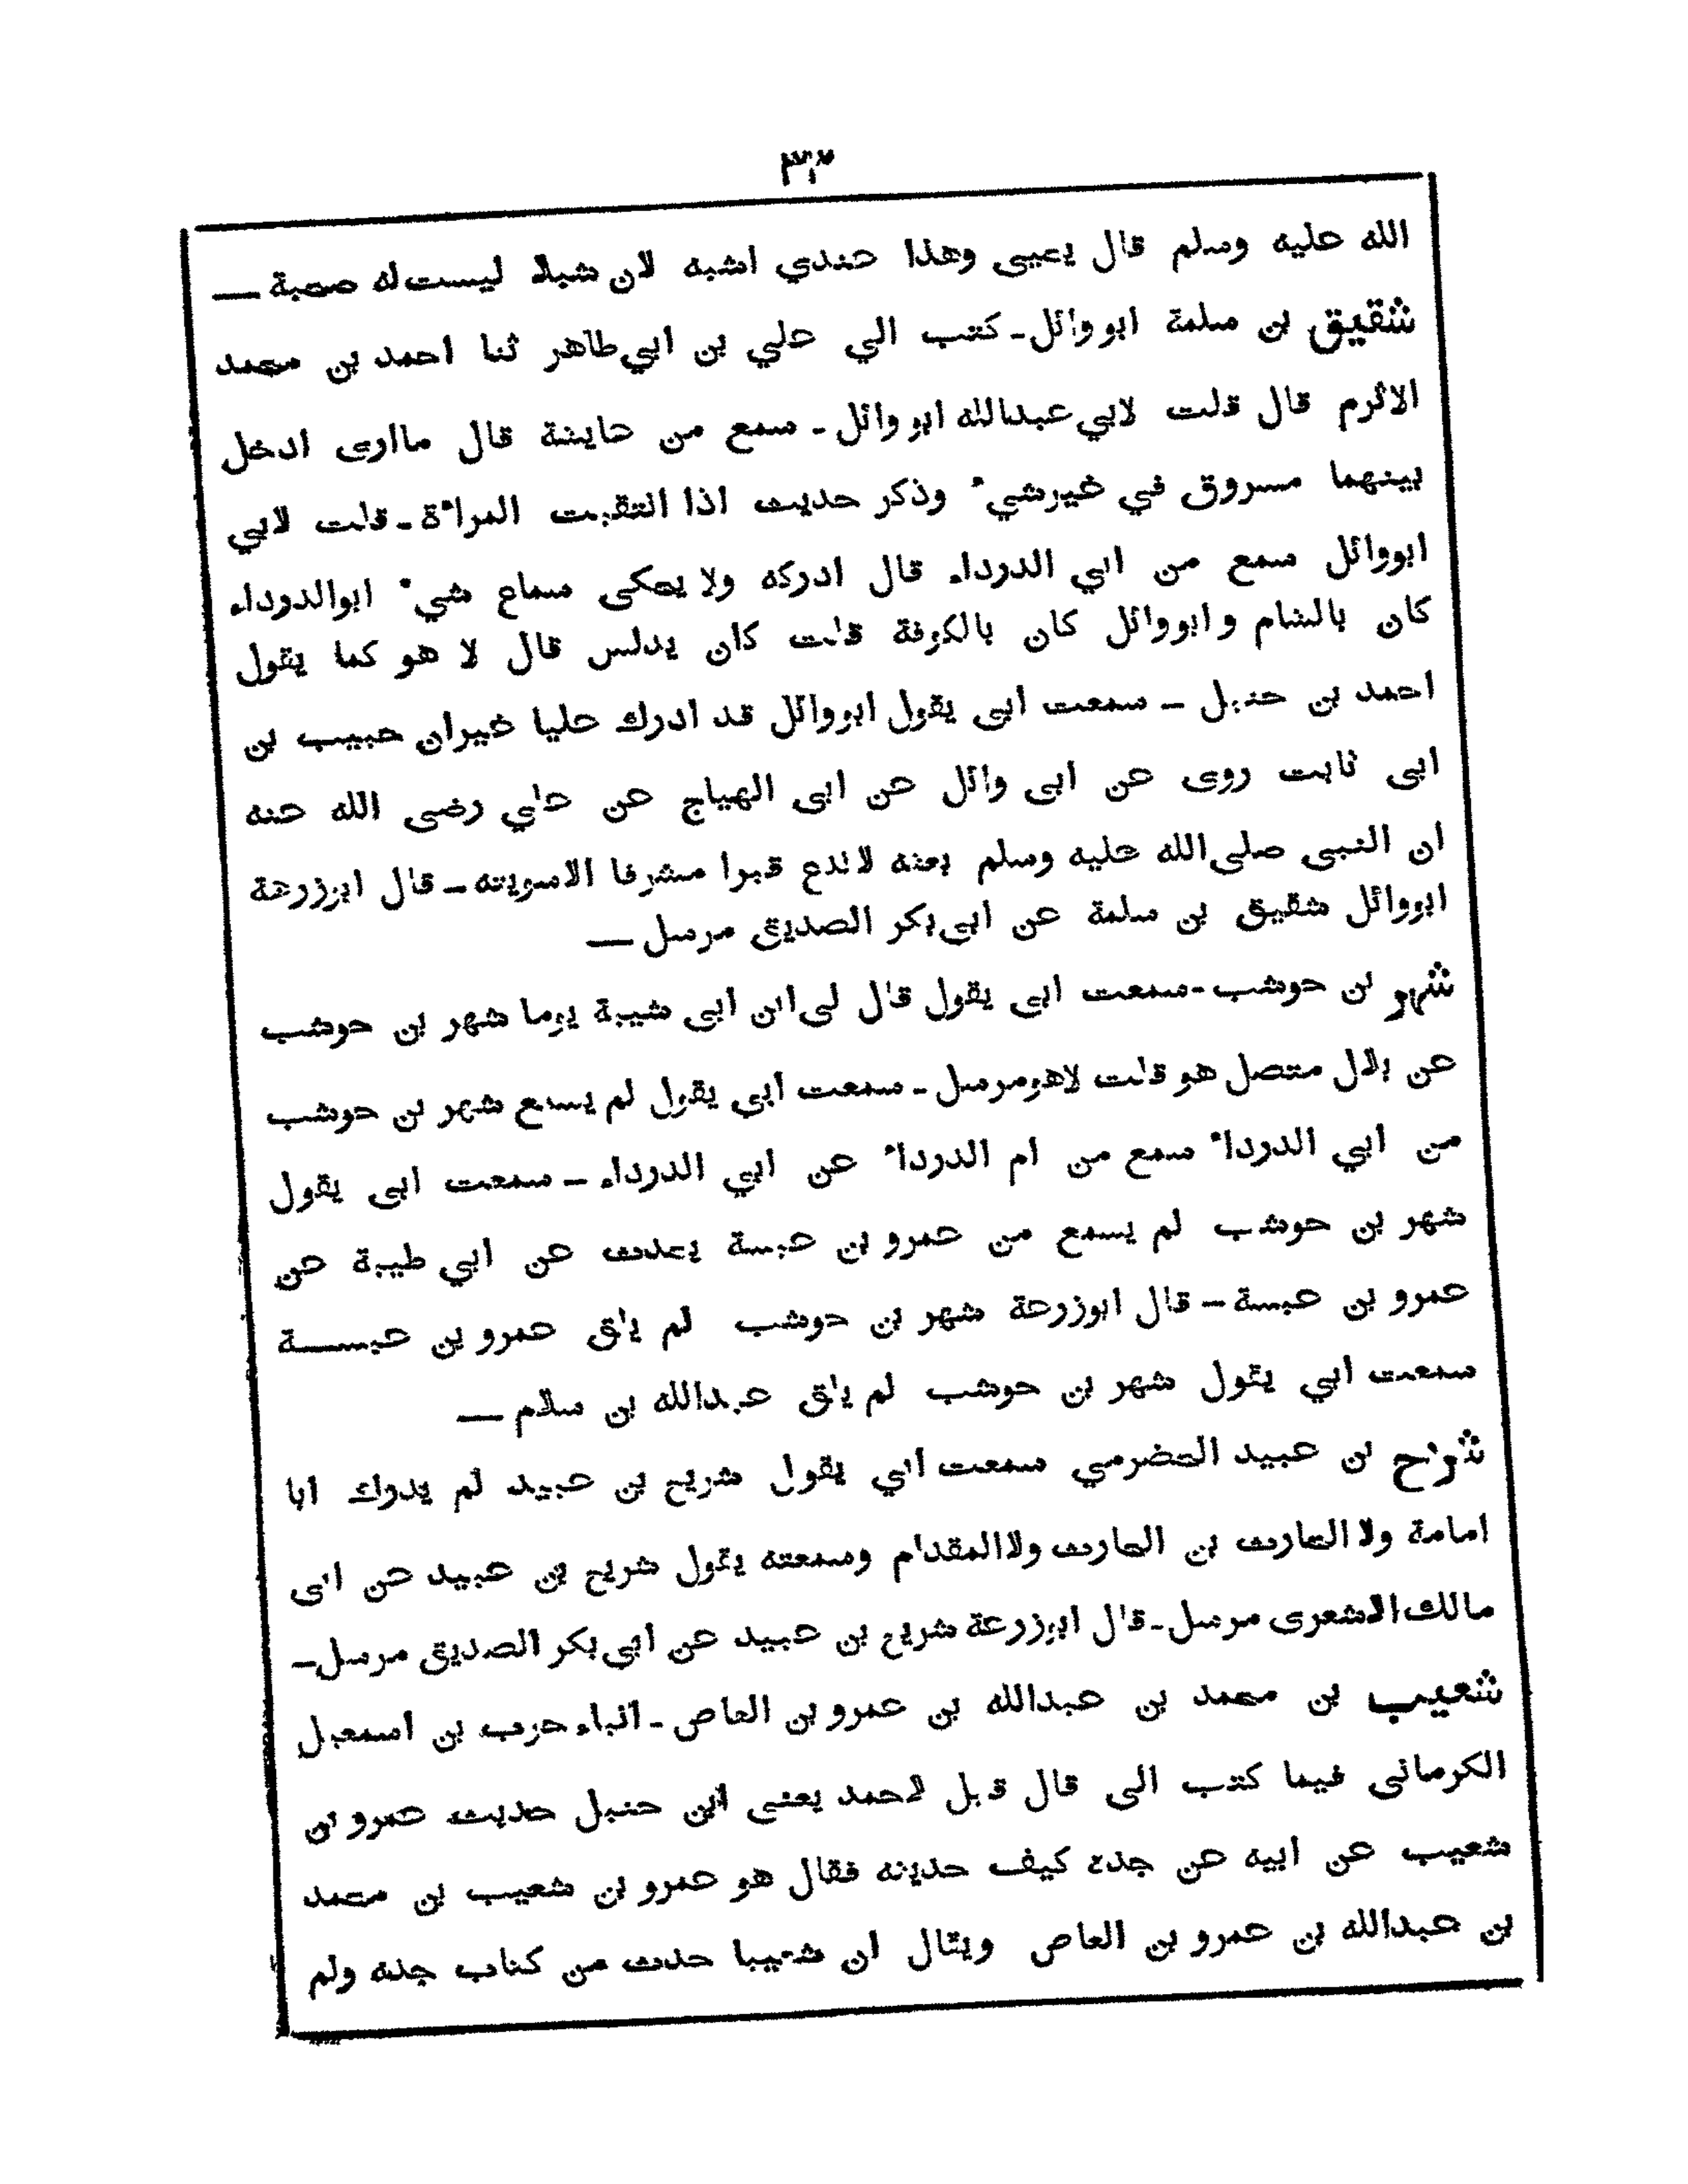 ٣٣
الله عليه وسلم قال يحيى وهذا عندي اشبه لان شبلا ليست له صحبة —
شقيق بن سلمة ابو وائل - كتب الي علي بن ابي طاهر ثنا احمد بن محمد
الاثرم قال قلت لابي عبدالله ابو وائل - سمع من عايشة قال ماارى ادخل
بينهما مسروق في غيرشيء وذكر حديث اذا انتقبت المراءة - قلت لابي
ابووائل سمع من ابي الدرداء قال ادركه ولا يحكى سماع شيء ابوالدرداء
كان بالشام و ابووائل كان بالكوفة قلت كان يدلس قال لا هو كما يقول
احمد بن حنبل - سمعت ابى يقول ابووائل قد ادرك عليا غيران حبيب بن
ابى ثابت روى عن ابى وائل عن ابى الهياج عن علي رضى الله عنه
ان النبى صلى الله عليه وسلم بعثه لاتدع قبرا مشرفا الاسويته - قال ابوزرعة
ابووائل شقيق بن سلمة عن ابى بكر الصديق مرسل —
شهر بن حوشب - سمعت ابى يقول قال لى ابن ابى شيبة يوما شهر بن حوشب
عن بلال متصل هو قلت لاهومرسل - سمعت ابي يقول لم يسمع شهر بن حوشب
من ابي الدرداء سمع من ام الدرداء عن ابي الدرداء - سمعت ابى يقول
شهر بن حوشب لم يسمع من عمرو بن عبسة يحدث عن ابي طيبة عن
عمرو بن عبسة - قال ابوزرعة شهر بن حوشب لم يلق عمرو بن عبســة
سمعت ابي يقول شهر بن حوشب لم يلق عبدالله بن سلام —
شريح بن عبيد الحضرمي سمعت ابي يقول شريح بن عبيد لم يدرك ابا
امامة ولا الحارث بن الحارث ولاالمقدام وسمعته يقول شريح بن عبيد عن ابى
مالك الاشعرى مرسل - قال ابوزرعة شريح بن عبيد عن ابى بكر الصديق مرسل -
شعيب بن محمد بن عبدالله بن عمرو بن العاص - انباء حرب بن اسمعيل
الكرمانى فيما كتب الى قال قيل لاحمد يعنى ابن حنبل حديث عمرو بن
شعيب عن ابيه عن جده كيف حديثه فقال هو عمرو بن شعيب بن محمد
بن عبدالله بن عمرو بن العاص ويقال ان شعيبا حدث من كتاب جده ولم